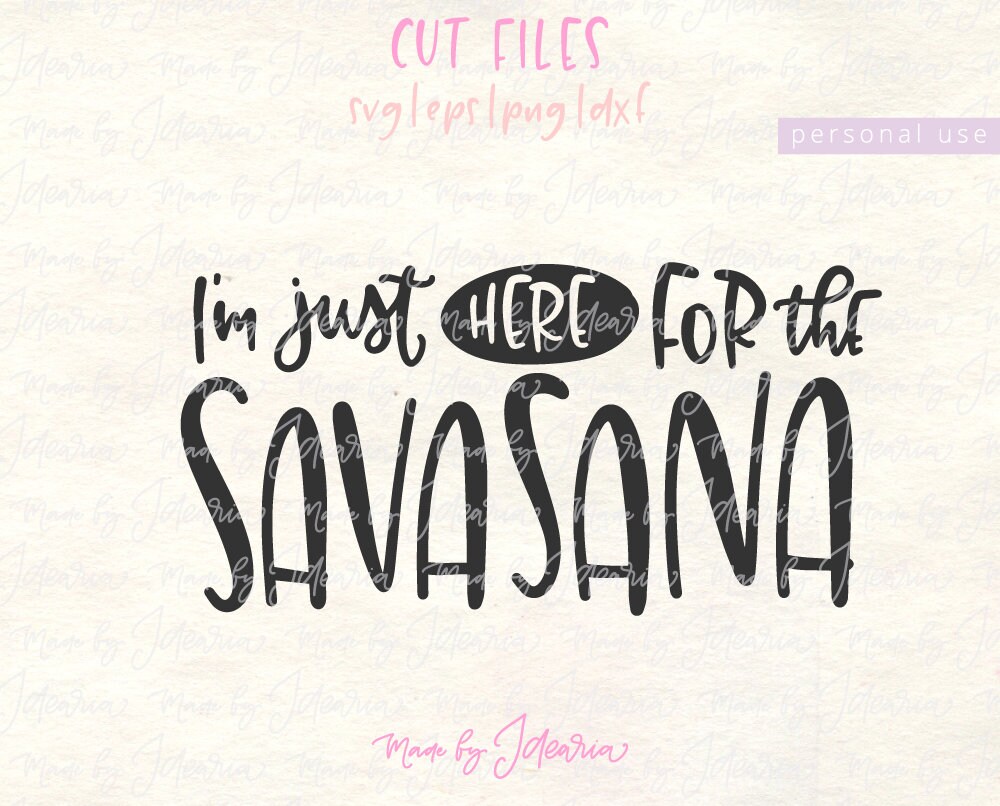 CUT FILES
svg|eps|png|dxf
personal use
I'm just HERE FOR the
SAVASANA
Made by Idearia